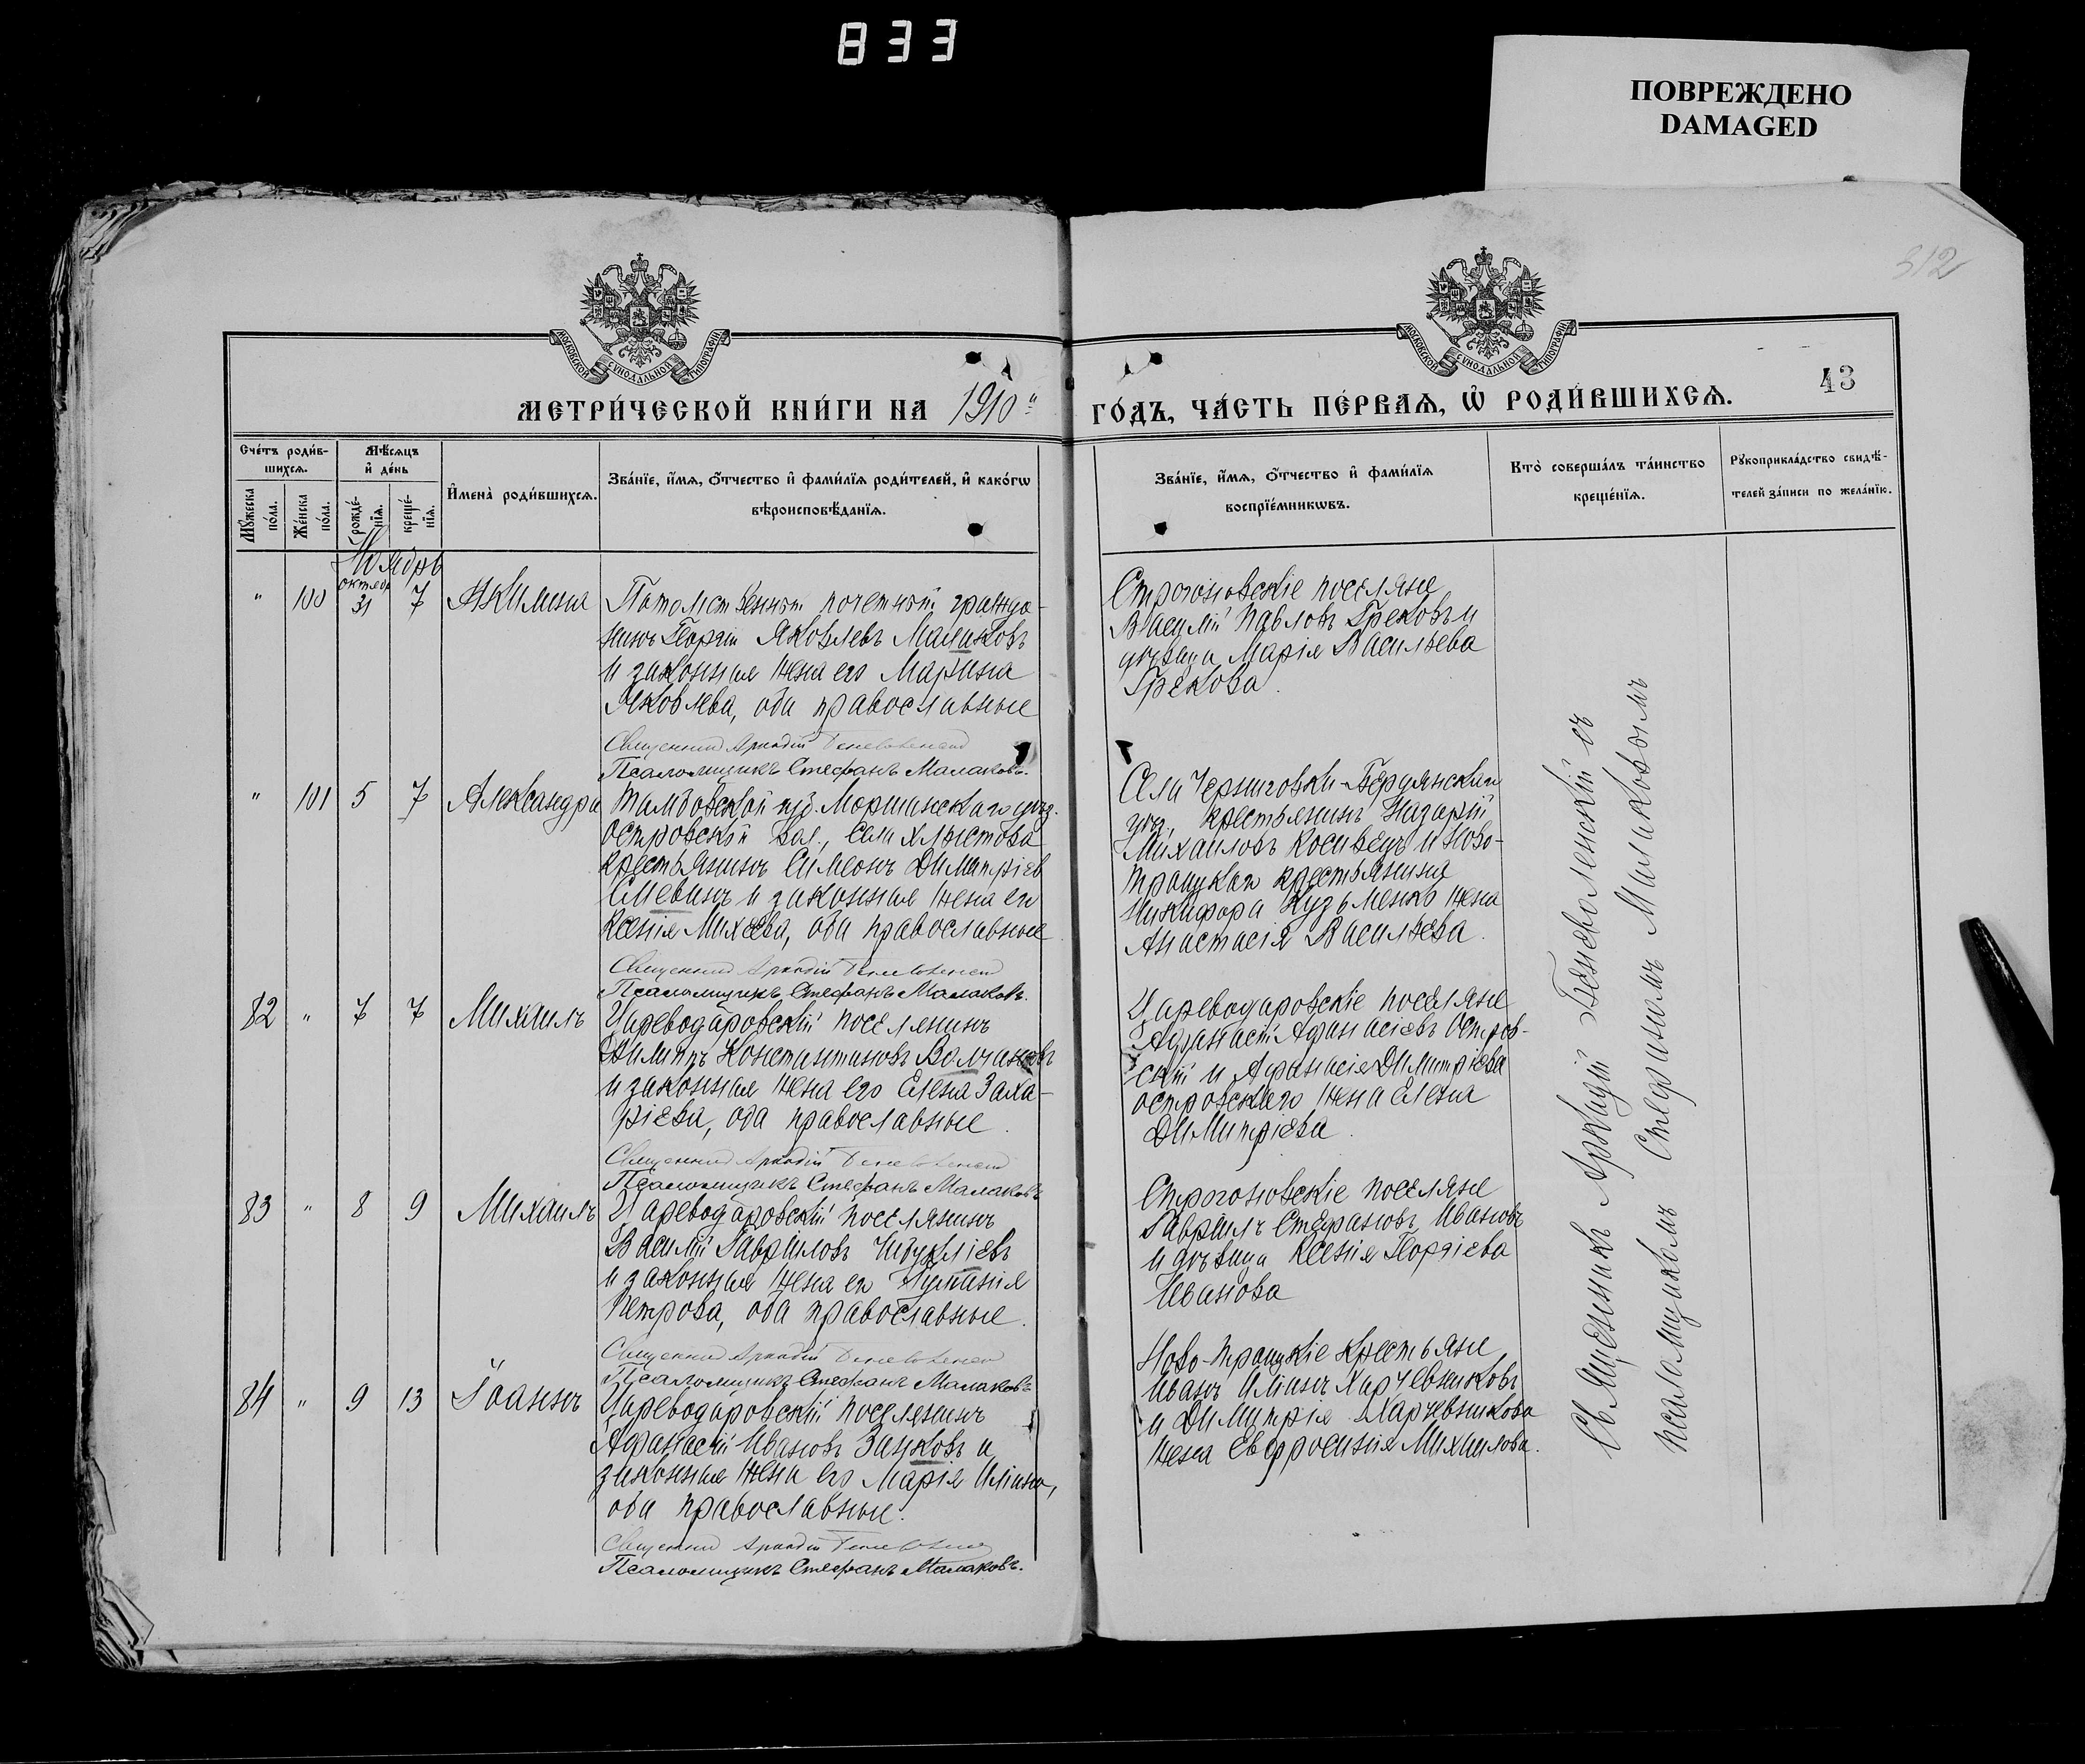 833
ПОВРЕЖДЕНО
DAMAGED
312
МОСКОВСКОЙ СУНОДАЛЬНОЙ ТИПОГРАФІИ
МОСКОВСКОЙ СУНОДАЛЬНОЙ ТИПОГРАФІИ
МЕТРИ́ЧЕСКОЙ КНИ́ГИ НА 1910 ГО́ДЪ, ЧА́СТЬ ПЕ́РВАѦ, Ѡ҆ РОДИ́ВШИХСѦ.
43
Сче́тъ роди́в-
шихсѧ.
Мꙋ́жеска по́ла.
Же́нска по́ла.
Мѣ́сѧцъ
и҆ де́нь
рожде́-
нїѧ.
креще́-
нїѧ.
И҆мена̀ роди́вшихсѧ.
Зва́нїе, и҆́мѧ, ѻ҆́тчество и҆ фами́лїѧ роди́телей, и҆ како́гѡ
вѣроисповѣ́данїѧ.
Зва́нїе, и҆́мѧ, ѻ҆́тчество и҆ фами́лїѧ
воспрїе́мникѡвъ.
Кто̀ соверша́лъ та́инство
креще́нїѧ.
Рꙋкоприкла́дство свидѣ́-
телей за́писи по жела́нїю.
Ноябрь
" 100 октяб. 31 7 Акилина
Потомственный почетный гражда-
нинъ Георгій Яковлевъ Маликовъ
и законная жена его Марина
Яковлева, оба православные
Священник Аркадій
Псаломщикъ Стефанъ Малаковъ.
Строгоновскіе поселяне
Василій Павловъ Грековъ и
дѣвица Марія Васильева
Грекова
" 101 5 7 Александра
Тамбовской губ. Моршанскаго уѣзд.
Островской вол., села Хлыстова
крестьянинъ Симеонъ Димитріев
и законная жена его
Ксенія Михеева, оба православные
Священник Аркадій
Псаломщикъ Стефанъ Малаковъ.
Села Черниговки-Бердянскаго
уѣз. крестьянинъ Назарій
Михаиловъ Косивецъ и Ново-
троицкаго крестьянина
Никифора Кузьменко жена
Анастасія Васильева.
82 " 7 7 Михаилъ
Цареводаровскій поселянинъ
Филиппъ Константиновъ Волчановъ
и законная жена его Елена Заха-
ріева, оба православные.
Священник Аркадій
Псаломщикъ Стефанъ Малаковъ
Цареводаровскіе поселяне
Афанасій Афанасіевъ Остров-
скій и Афанасія Димитріева
островскаго жена Елена
Димитріева.
83 " 8 9 Михаилъ
Цареводаровскій поселянинъ
Василій Гавриловъ Чебукліевъ
и законная жена его
Петрова, оба православные.
Священник Аркадій
Псаломщикъ Стефанъ Малаковъ
Строгоновскіе поселяне
Гавріилъ Стефановъ Ивановъ
и дѣвица Ксенія Георгіева
Иванова
84 " 9 13 Іоаннъ
Цареводаровскій поселянинъ
Афанасій Ивановъ Занковъ и
законная жена его Марія Иліина,
оба православные.
Священник Аркадій
Псаломщикъ Стефанъ Малаковъ.
Ново-троицкіе крестьяне
Иванъ Иліинъ Харчевниковъ
и Димитрія Харчевникова
жена Евфросинія Михаилова.
Священникъ Аркадій Беневоленскій съ
псаломщикомъ Стефаномъ Малаковымъ